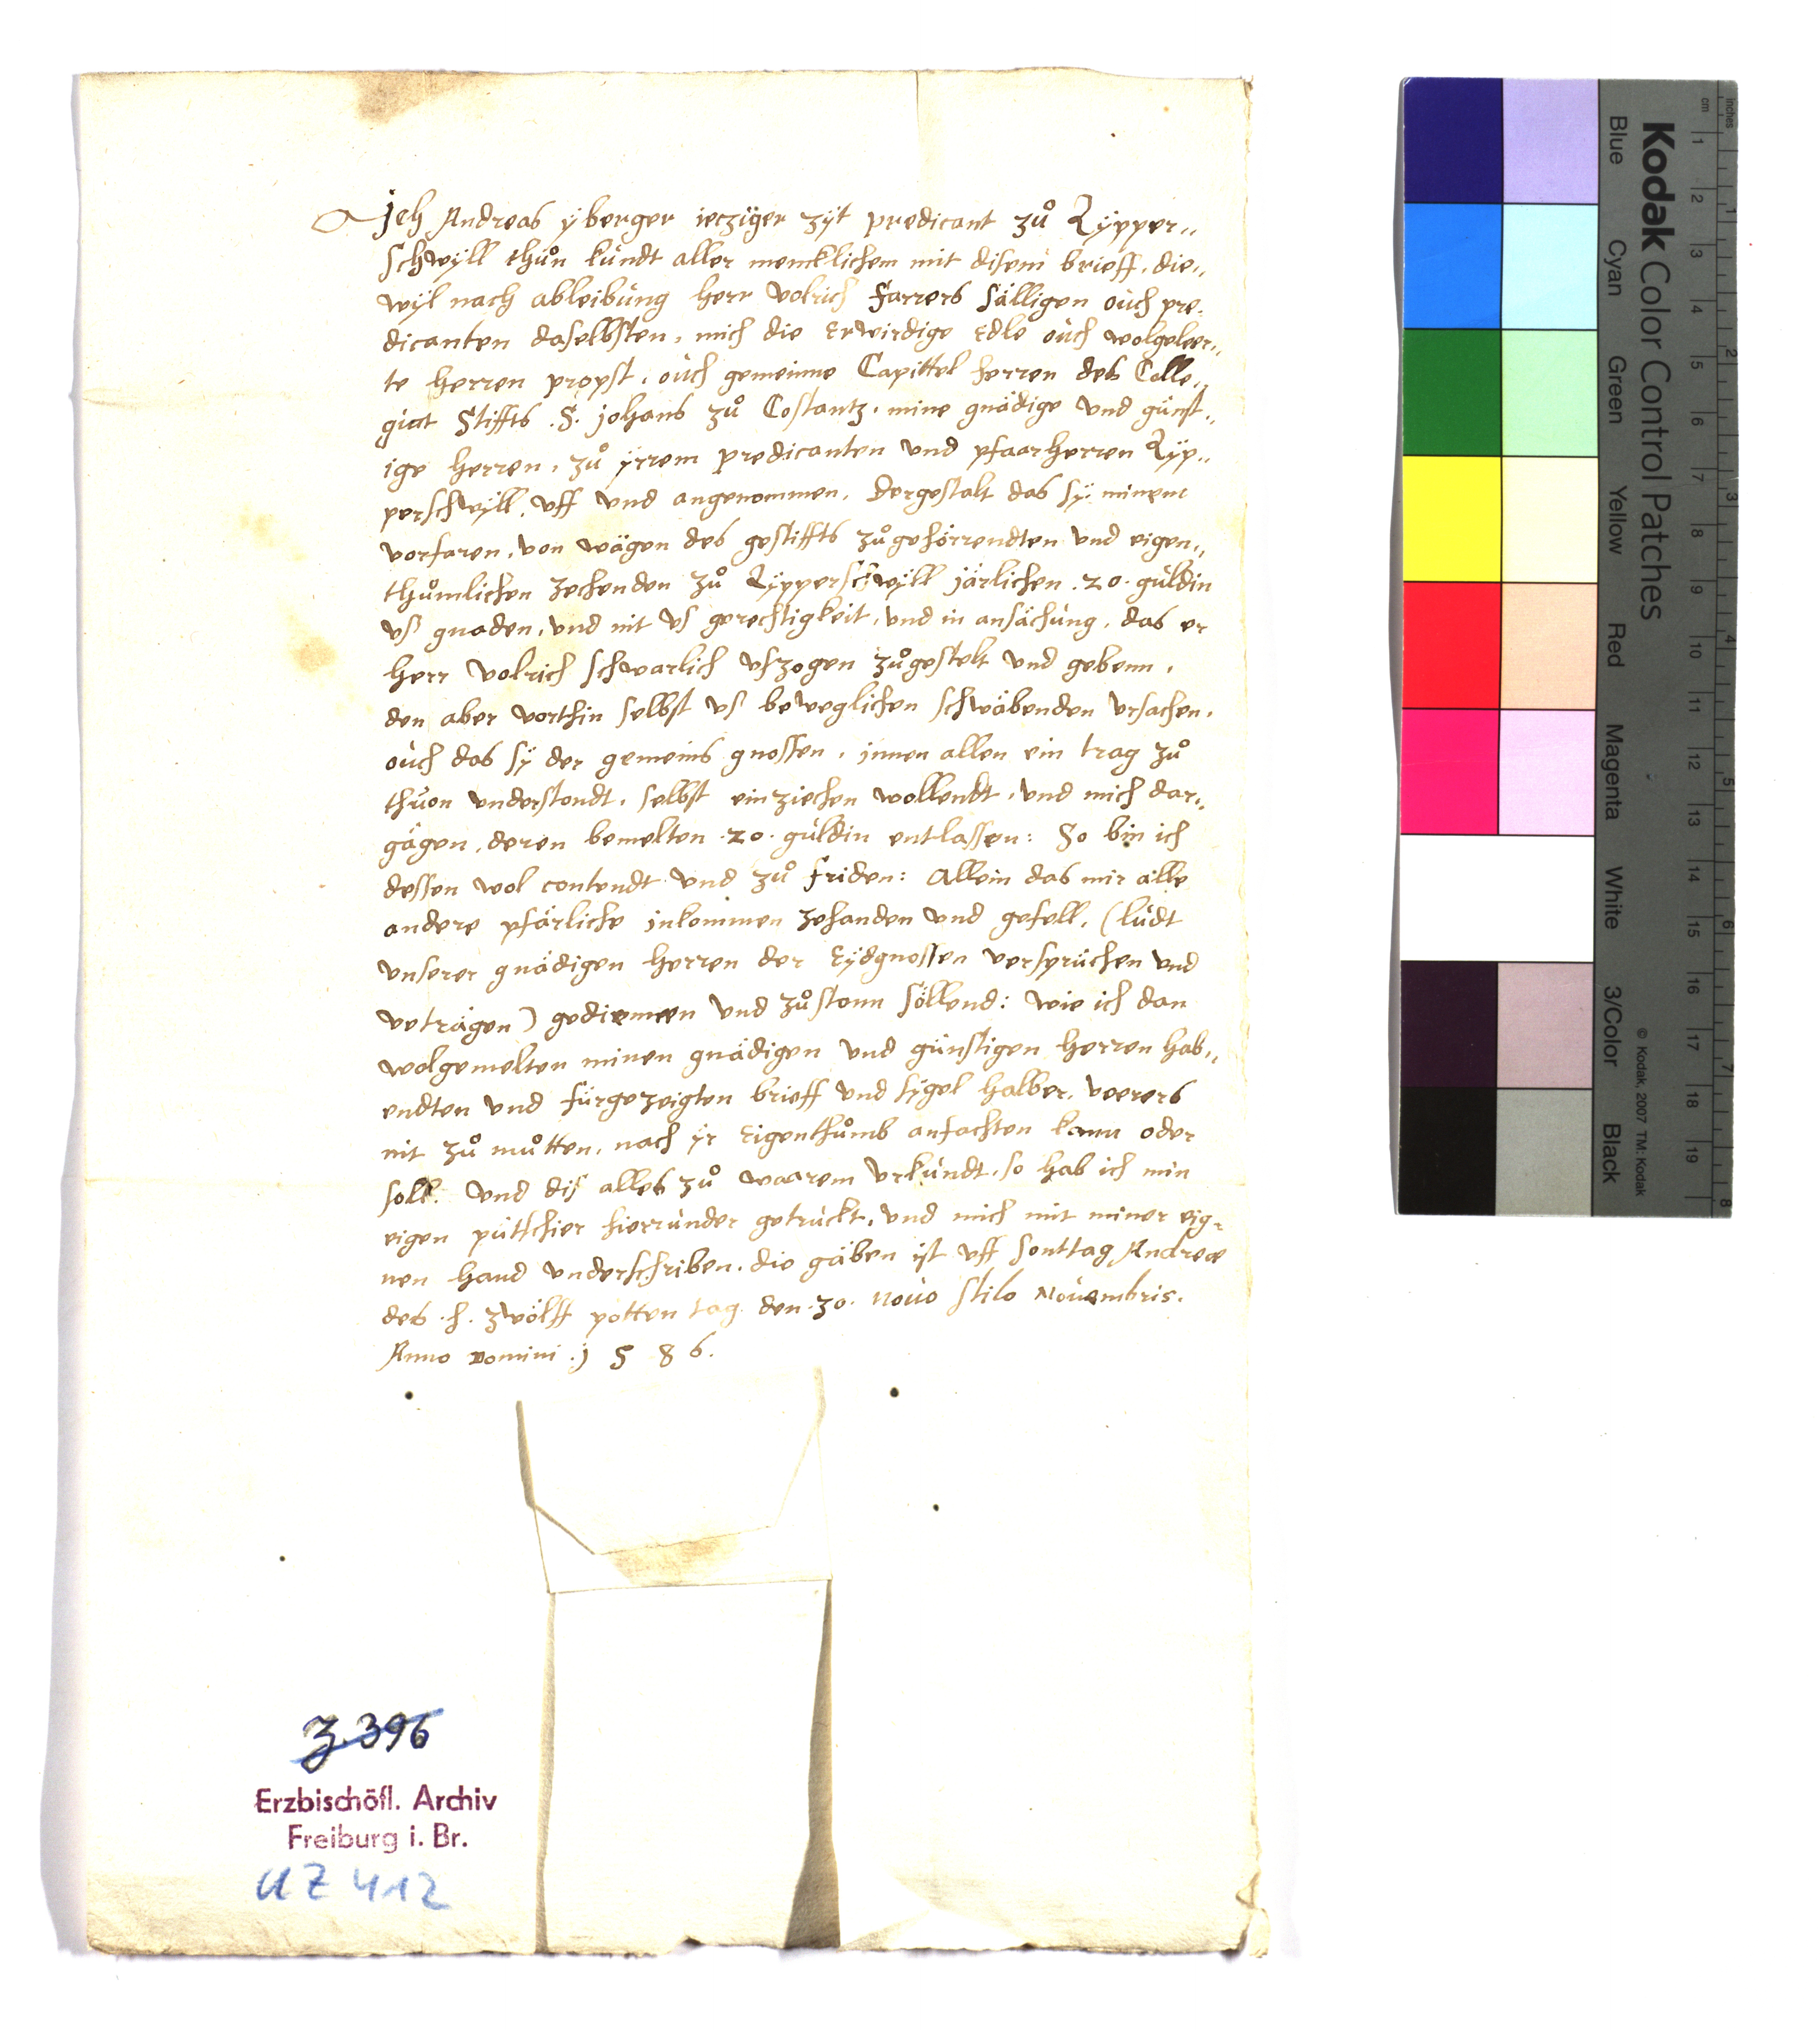 Jch Andreas ÿberger ieczÿger zÿt predicant zů Lÿpper„
schwÿll thůn kundt aller mencklichem mit disem brieff, die„
wÿl nach ableibung herr volrich farrers sälligen ouch pre„
dicanten daselbsten, mich die Erwirdige Edle ouch wolgeleer„
te herren propst, ouch gemeinne Capittel herren des Colle„
giat Stiffts .S. johans zů Costantz, mine gnädige vnd günst„
ige herren, zů ÿrrem predicanten vnd pfaarherren Lÿp„
perschwÿll, vff vnd angenommen, dergestalt das sÿ minem
vorfaren, von wägen des gestiffts zůgehörrendten vnd eigen„
thůmlichen zehenden zů Lÿpperschwÿll järlichen .20. guldin
vs gnaden, vnd nit vs gerechtigkeit, vnd in ansächung, das er
herr volrich schwarlich vfzogen zůgestelt vnd gebenn,
den aber vorthin selbst vs beweglichen schwäbenden vrsachen,
ouch das sÿ der gemeins gnossen, innen allen ein trag zů
thuon vnderstondt, selbst einziechen wollendt, vnd mich dar„
gägen, deren bemelten .20. guldin entlassen: So bin ich
dessen wol contendt vnd zů friden: Allein das mir alle
andere pfärliche inkommen zehanden vnd gefell, (ludt
vnserer gnädigen herren der Eÿdgnossen versprüchen vnd
veträgen) gediennen vnd zůstonn söllend: wie ich dan
wolgemelten minen gnädigen vnd günstigen herren hab„
endten vnd fürgezeigten brieff vnd sÿgel halber, veerers
nit zů můtten, nach ÿr Eigenthůmb anfachten kann oder
soll. Vnd dis alles zů waarem vrkundt, so hab ich min
eigen püttschier hierrunder getruckt, vnd mich mit miner eig„
nen hand vnderschriben, die gäben ist vff sonttag Andreæ
des .h. zwölff potten tag den .30. nouo stilo Nouembris.
Anno domini .j 5 8 6.
Z 396
Erzbischöfl. Archiv
Freiburg i. Br.
UZ 412
Kodak Color Control Patches
© Kodak, 2007 TM: Kodak
Blue Cyan Green Yellow Red Magenta White 3/Color Black
inches 1 2 3 4 5 6 7 8
cm 1 2 3 4 5 6 7 8 9 10 11 12 13 14 15 16 17 18 19